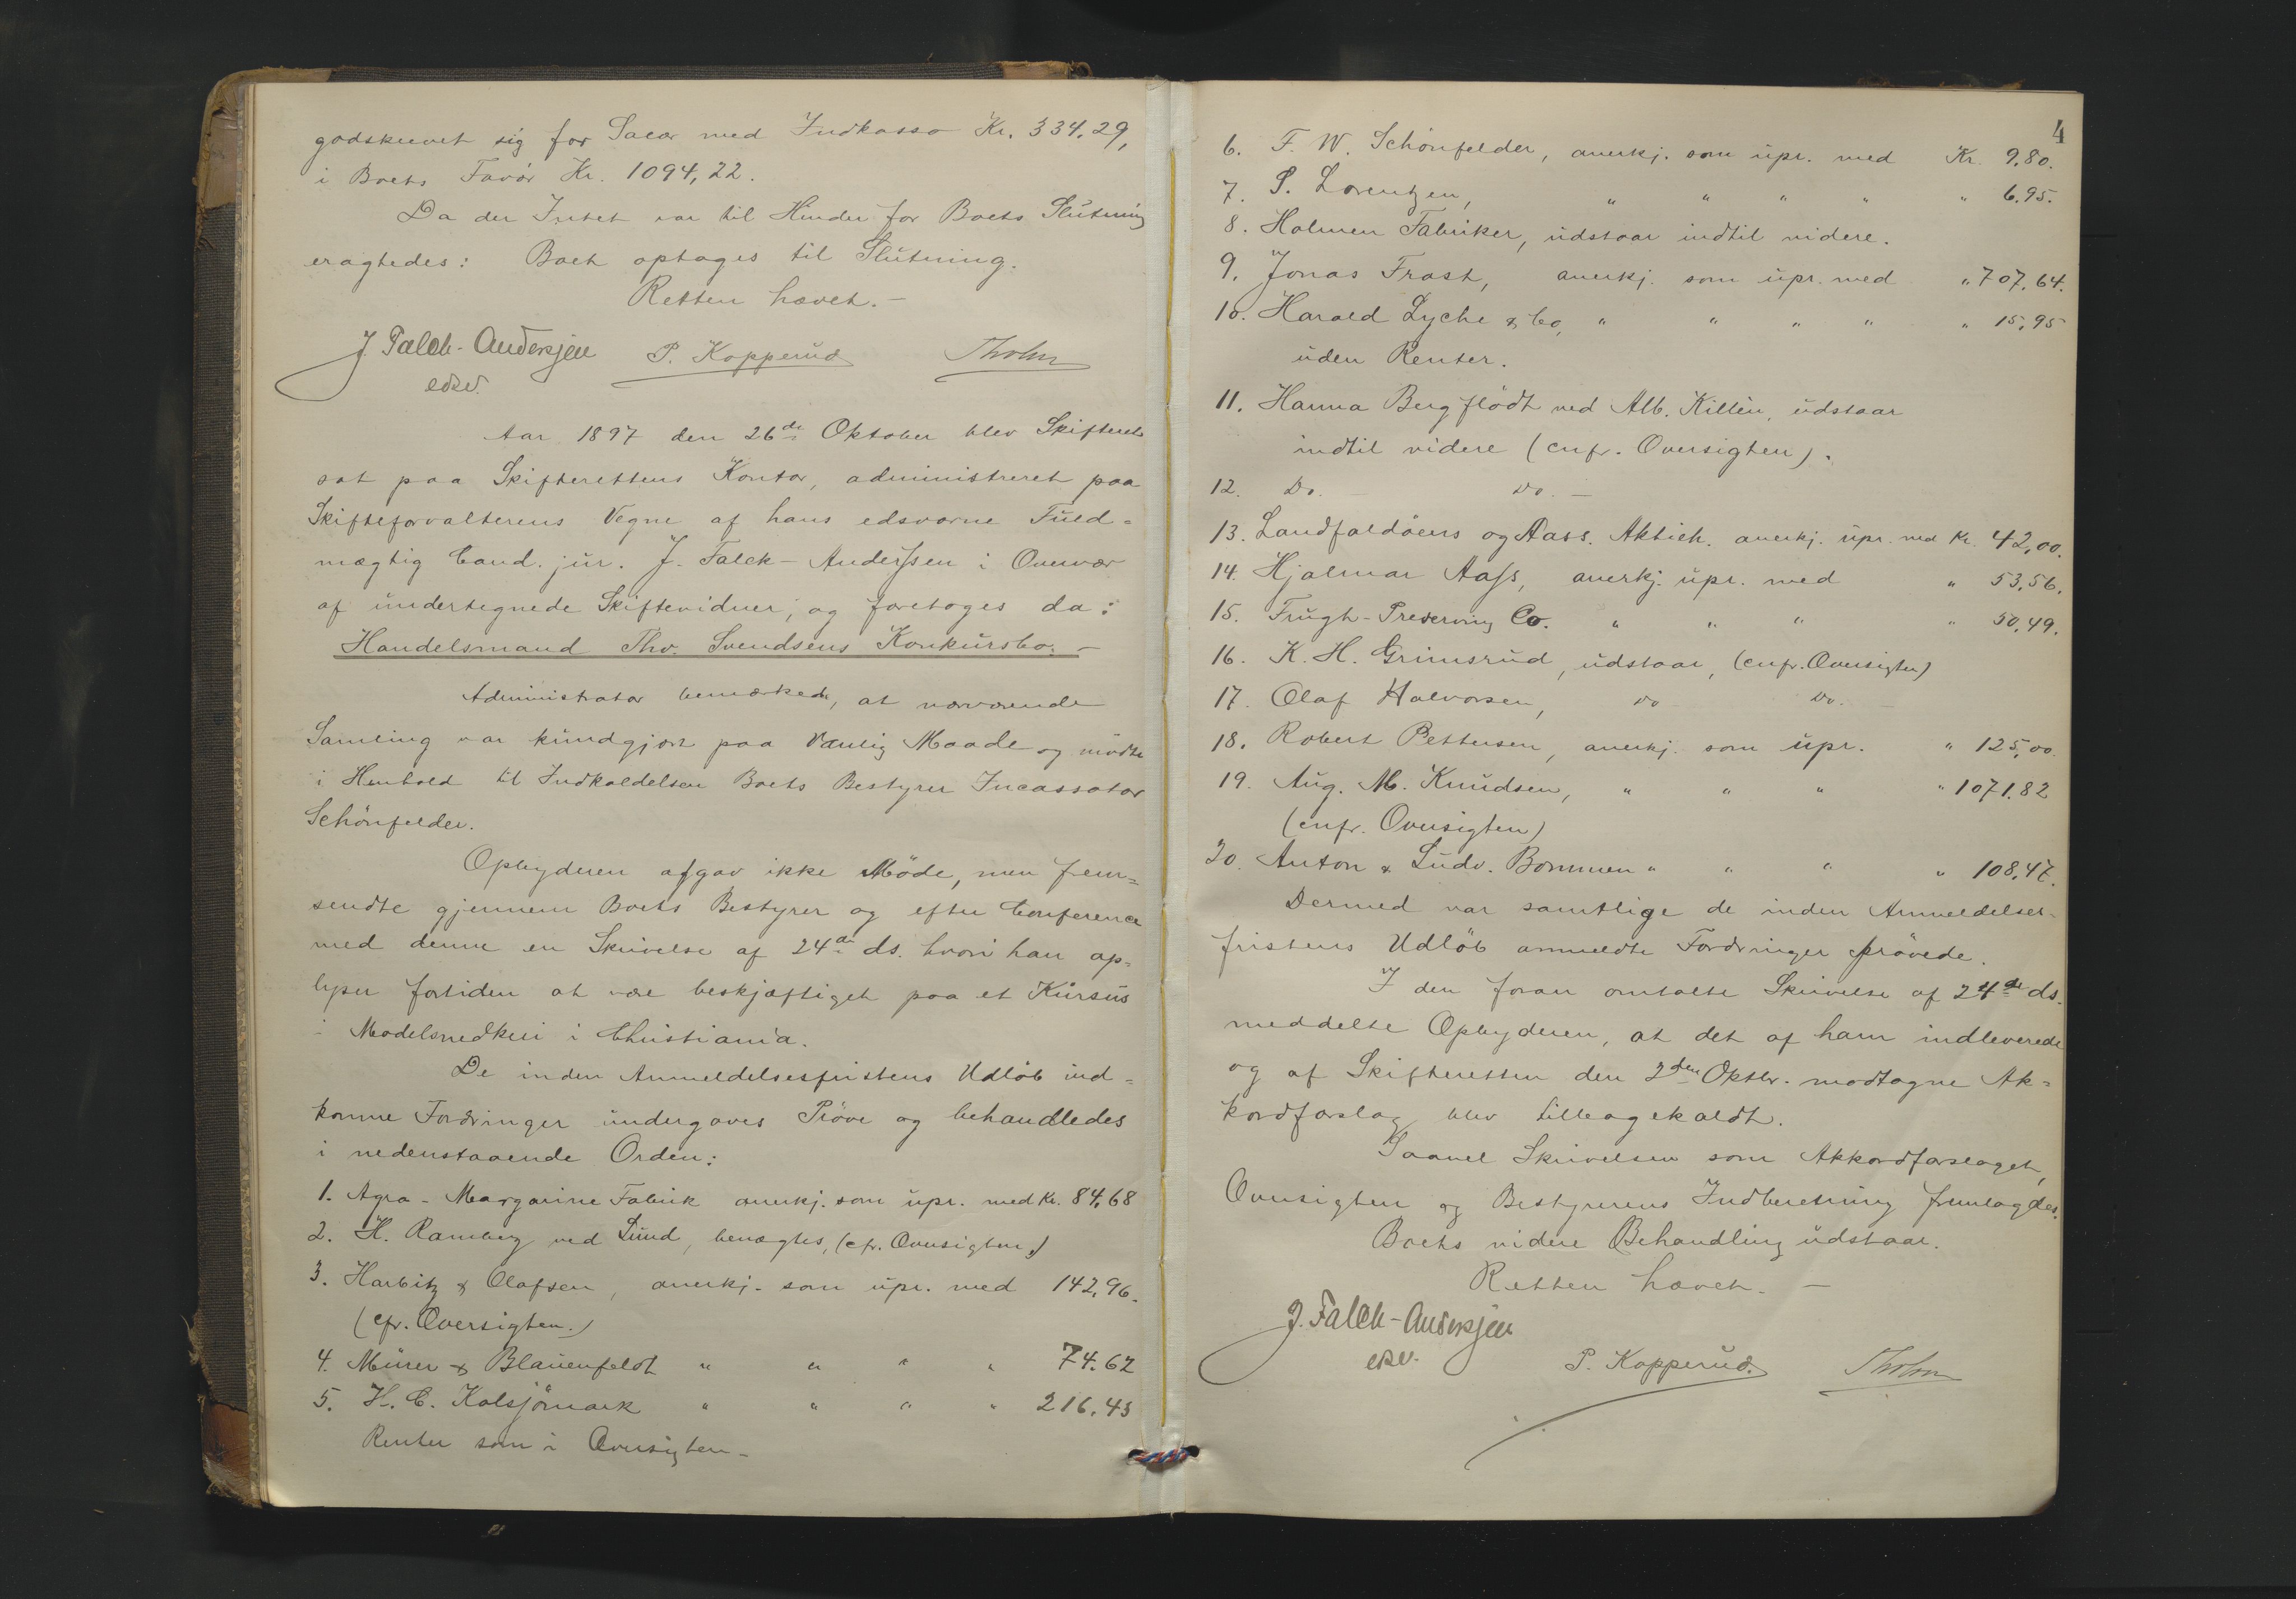 godskrevet sig for Salær med Indkasso Kr. 334.29,
i Boets Favör Kr. 1094,22.
Da der Intet var til Hinder for Boets Slutning
eragtedes: Boet optages til Slutning.
Retten hævet. –
J. Falck-Anderssen P. Kopperud Tholm
edsv.
Aar 1897 den 26de Oktober blev Skifteret
sat paa Skifterettens Kontor, administreret paa
Skifteforvalterens Vegne af hans edsvorne Fuld=
mægtig Cand. jur. J. Falck-Anderssen i Overvær
af undertegnede Skiftevidner, og foretoges da:
Handelsmand Thv. Svendsens Konkursbo. –
Administrator bemærkede, at nærværende
Samling var kundgjort paa Vanlig Maade og mödte
i Henhold til Indkaldelsen Boets Bestyrer Incassator
Schönfelder.
Opbyderen afgav ikke Möde, men frem=
sendte gjennem Boets Bestyrer og efter Conference
med denne en Skrivelse af 24de ds. hvori han op=
lyser fortiden at være beskjæftiget paa et Kursus
i Modelsnedkeri i Christiania.
De inden Anmeldelsesfristens Udlöb ind=
komne Fordringer undergaves Pröve og behandledes
i nedenstaaende Orden:
1. Agra-Margarine Fabrik anerkj. som upr. med Kr. 84,68
2. H. Ramberg ved Lund, benægtes, (cfr. Oversigten,)
3. Harbitz & Olafsen, anerkj. som upr. med 142,96.
(cfr. Oversigten.)
4. Mürer & Blauenfeldt " " " " 74.62
5. H. C. Kolsjömark " " " " 216.43
Renter som i Oversigten –
4
6. F. W. Schönfelder, anerkj. som upr. med Kr. 9.80.
7. S. Lorentzen, " " " " " 6.95.
8. Holmen Fabriker, udstaar indtil videre.
9. Jonas Frost, anerkj. som upr. med " 707.64.
10. Harald Lyche & Co, " " " " " 15,95
uden Renter.
11. Hanna Bergflödt ved Alb. Killén, udstaar
indtil videre (cnfr. Oversigten).
12. Do. – Do. –
13. Landfaldöens og Aass. Aktieh. anerkj. upr. med Kr. 42,00.
14. Hjalmar Aass, anerkj. upr. med " 53,56.
15. Frugh-Preserving Co. " " " " 50,49.
16. K. H. Grimsrud, udstaar, (cnfr. Oversigten)
17. Olaf Halvorsen, Do Do. –
18. Robert Pettersen, anerkj. som upr. " 125,00.
19. Aug. M. Knudsen, " " " " 1071.82
(cnfr. Oversigten)
20. Anton & Ludv. Bommen " " " " 108,47.
Dermed var samtlige de inden Anmeldelses-
fristens Udlöb anmeldte Fordringer prövede.
I den foran omtalte Skrivelse af 24de ds.
meddelte Opbyderen, at det af ham indleverede
og af Skifteretten den 2den Oktbr. modtagne Ak=
kordforslag blev tilbagekaldt.
Saavel Skrivelsen som Akkordforslaget,
Oversigten og Bestyrerens Indberetning fremlagdes.
Boets videre Behandling udstaar.
Retten hævet. –
J. Falck-Anderssen
edsv. P. Kopperud. Tholm